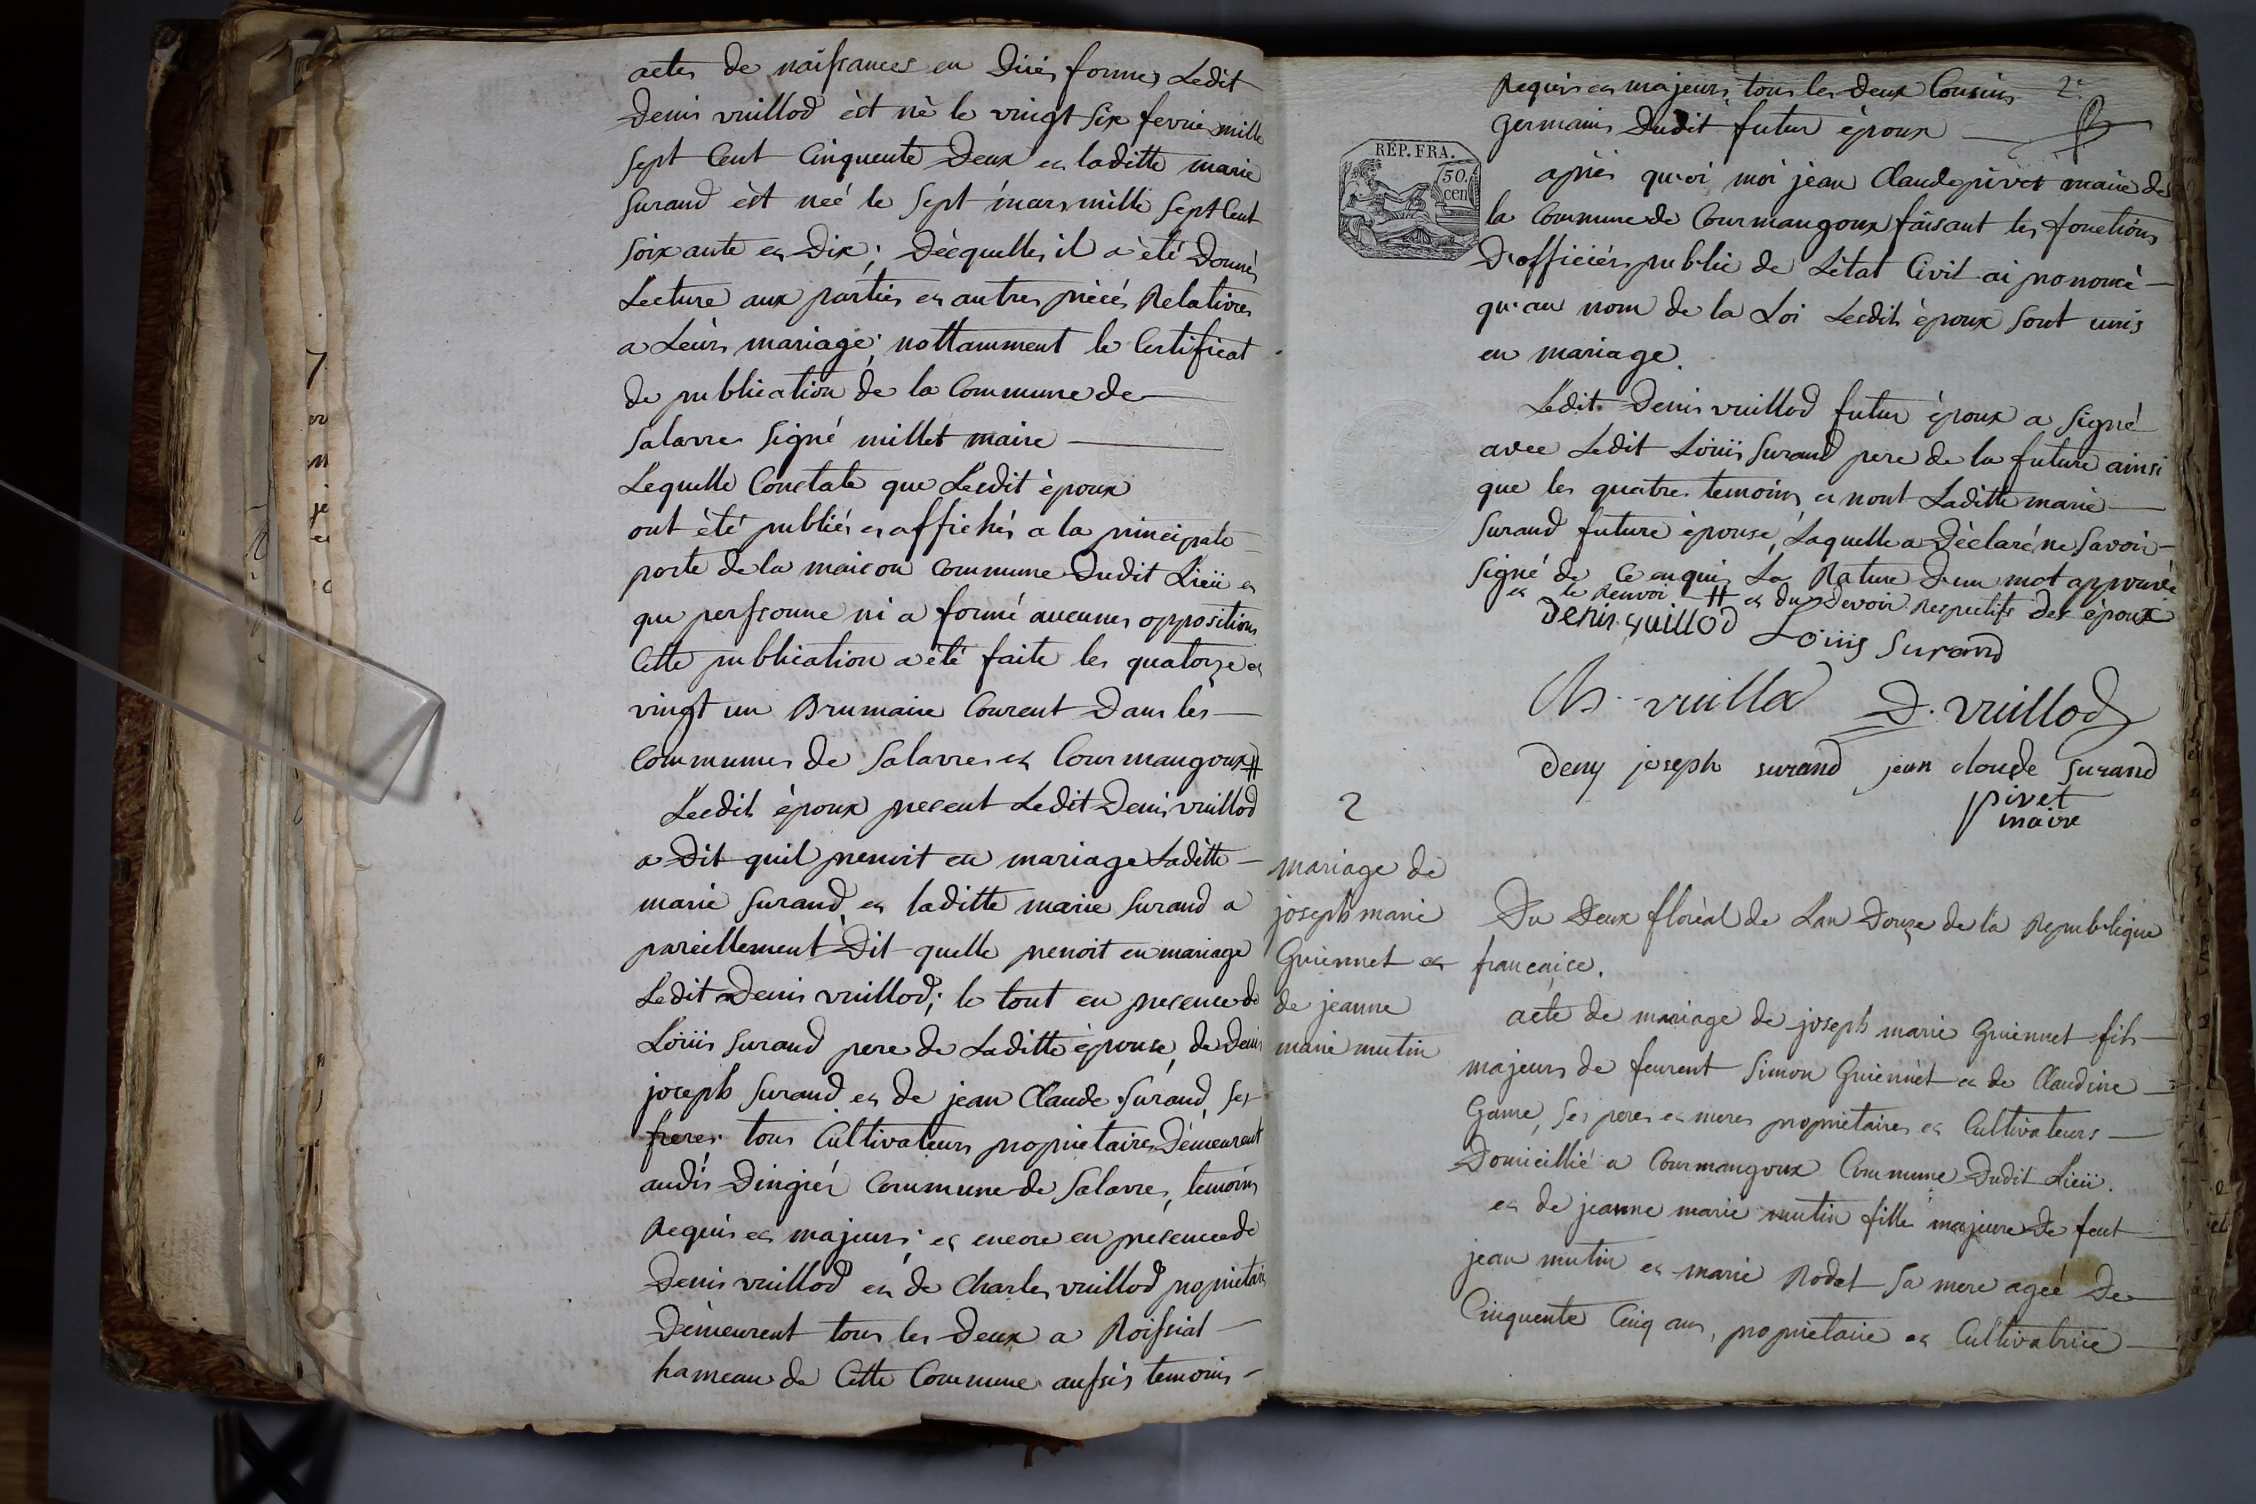 actes de naissances en Düës formes Ledit
Denis vuillod èst nè le vingt six fevrier mille
sept Cent Cinquente Deux et laditte marie
surand èst née le sept mars mille sept Cent
soixante et Dix; Dèsquelles il a èté Donnès
Lecture aux parties et autres pièces Relatives
a Leurs mariage; nottamment le Certificat
de publication de la Commune de
salavre signé millet maire
Lequelle Constate que Lesdit èpoux
ont èté publiés et affichés a la principale
porte de la maison Commune Dudit Lieü et
que perssonne ni a formé aucunes oppositions
Cette publication a èté faite les quatorze et
vingt un Brumaire Courent Dans les
Communes de salavre et Courmangoux #
Lesdits èpoux present Ledit Denis vuillod
a Dit quil prenoit en mariage Laditte
marie surand et laditte marie surand a
pareillement Dit quelle prenoit en mariage
Ledit Denis vuillod; le tout en presence de
Loüis surand pere de Laditte èpouse, de Denis
joseph surand et de jean Claude surand ses
freres tous Cultivateurs propriétaires Demeurent
audis Dingiér Commune de salavre, temoins
Requis et majeurs; et encore en presence de
Denis vuillod et de Charles vuillod propriétaire
Demeurent tous les Deux a Roissiat
hameau de Cette Commune aussis temoins
Requis et majeurs tous les Deux Cousins 2e
germains Dudit futur èpoux
RÉP. FRA.
50.
cen
après quoi moi jean Claude pivet maire de
la Commune de Courmangoux faisant les fonctions
D'officiér public de L'état Civil ai prononcè
qu'au nom de la Loi Lesdits èpoux sont unis
en mariage.
Ledit Denis vuillod futur èpoux a signé
avec Ledit Loüis surand pere de la future ainsi
que les quatres temoins et nont Laditte marie
surand future èpouse, Laquelle a Dèclaré ne savoir
signé de Ce enquis La Rature D'un mot approuvée
et le Renvoi # et du Devoir Respectifs des époux
Denis vuillod Loüis Surand
Ch. vuillod D. vuillod
deny joseph surand jean cloude surand
pivet
maire
2
mariage de
joseph marie
Guiennet et
de jeanne
marie mutin
Du Deux floréal de L'an Douze de la Republique
française.
acte de mariage de joseph marie Guiennet fils
majeurs de feurent Simon Guiennet et de Claudine
Game, ses peres et meres propriétaires et Cultivateurs
Domicillié a Courmangoux Commune Dudit Lieü.
et de jeanne marie mutin fille majeure de feut
jean mutin et marie Rodet sa mere ageé De
Cinquente Cinq ans, propriétaire et Cultivatrice